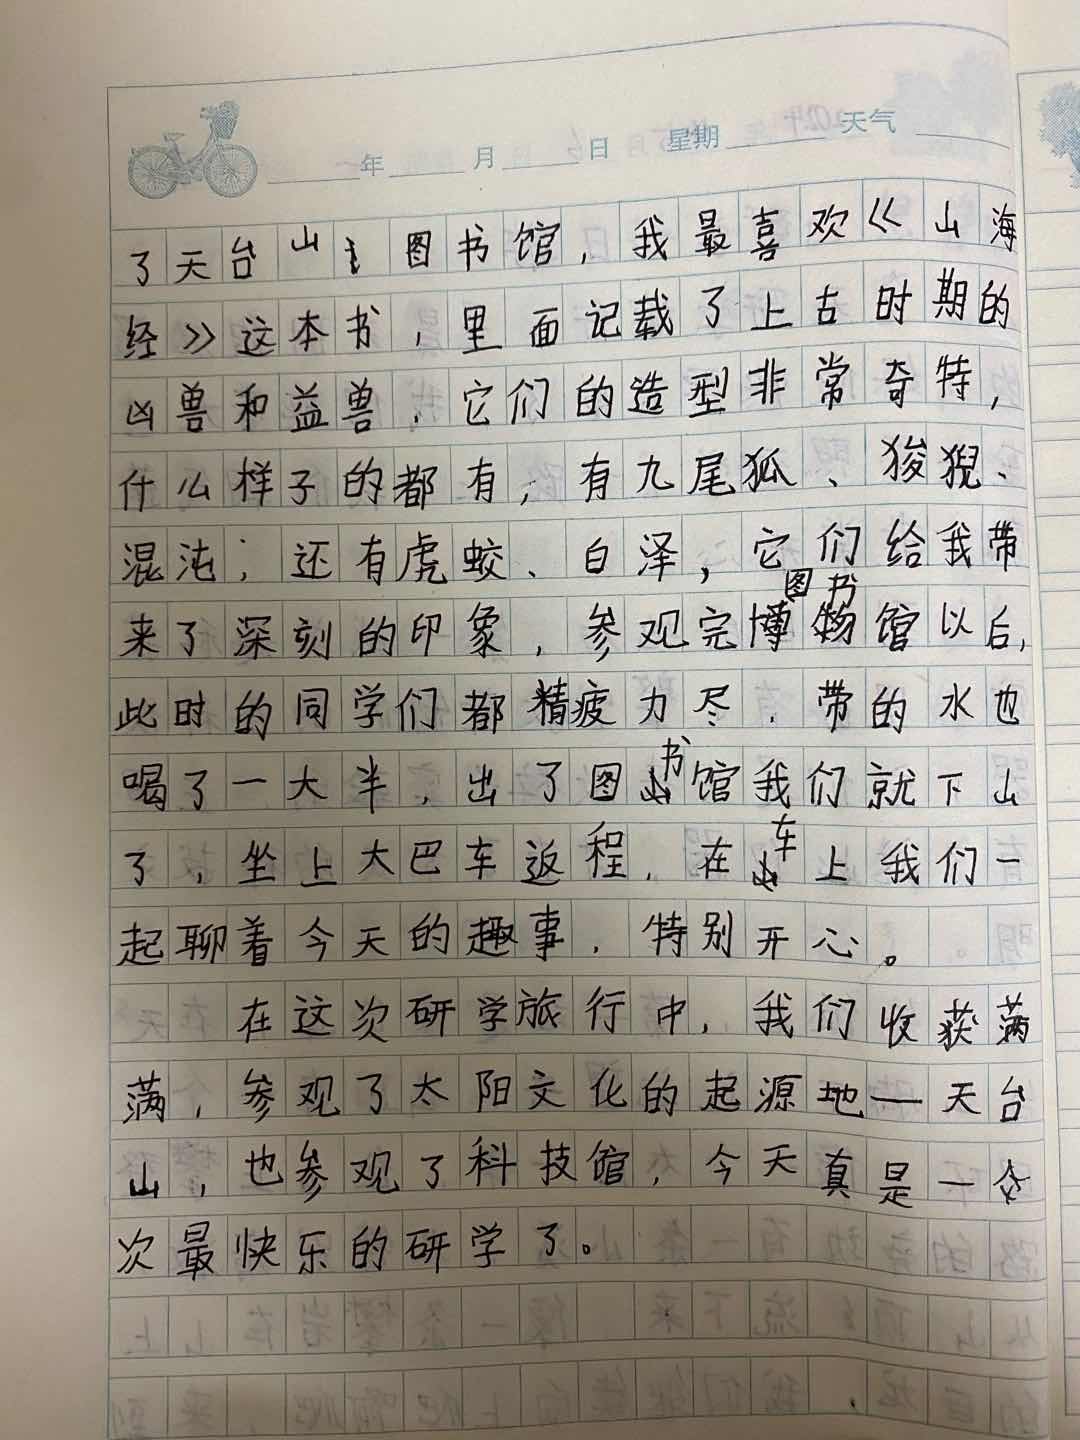 年 月 日 星期 天气
了天台山图书馆，我最喜欢《山海
经》这本书，里面记载了上古时期的
凶兽和益兽，它们的造型非常奇特，
什么样子的都有，有九尾狐、狻猊、
混沌；还有虎蛟、白泽，它们给我带
图书
来了深刻的印象，参观完博物馆以后，
此时的同学们都精疲力尽，带的水也
喝了一大半，出了图书馆我们就下山
了，坐上大巴车返程，在车上我们一
起聊着今天的趣事，特别开心。
在这次研学旅行中，我们收获满
满，参观了太阳文化的起源地一天台
山，也参观了科技馆，今天真是一
次最快乐的研学了。